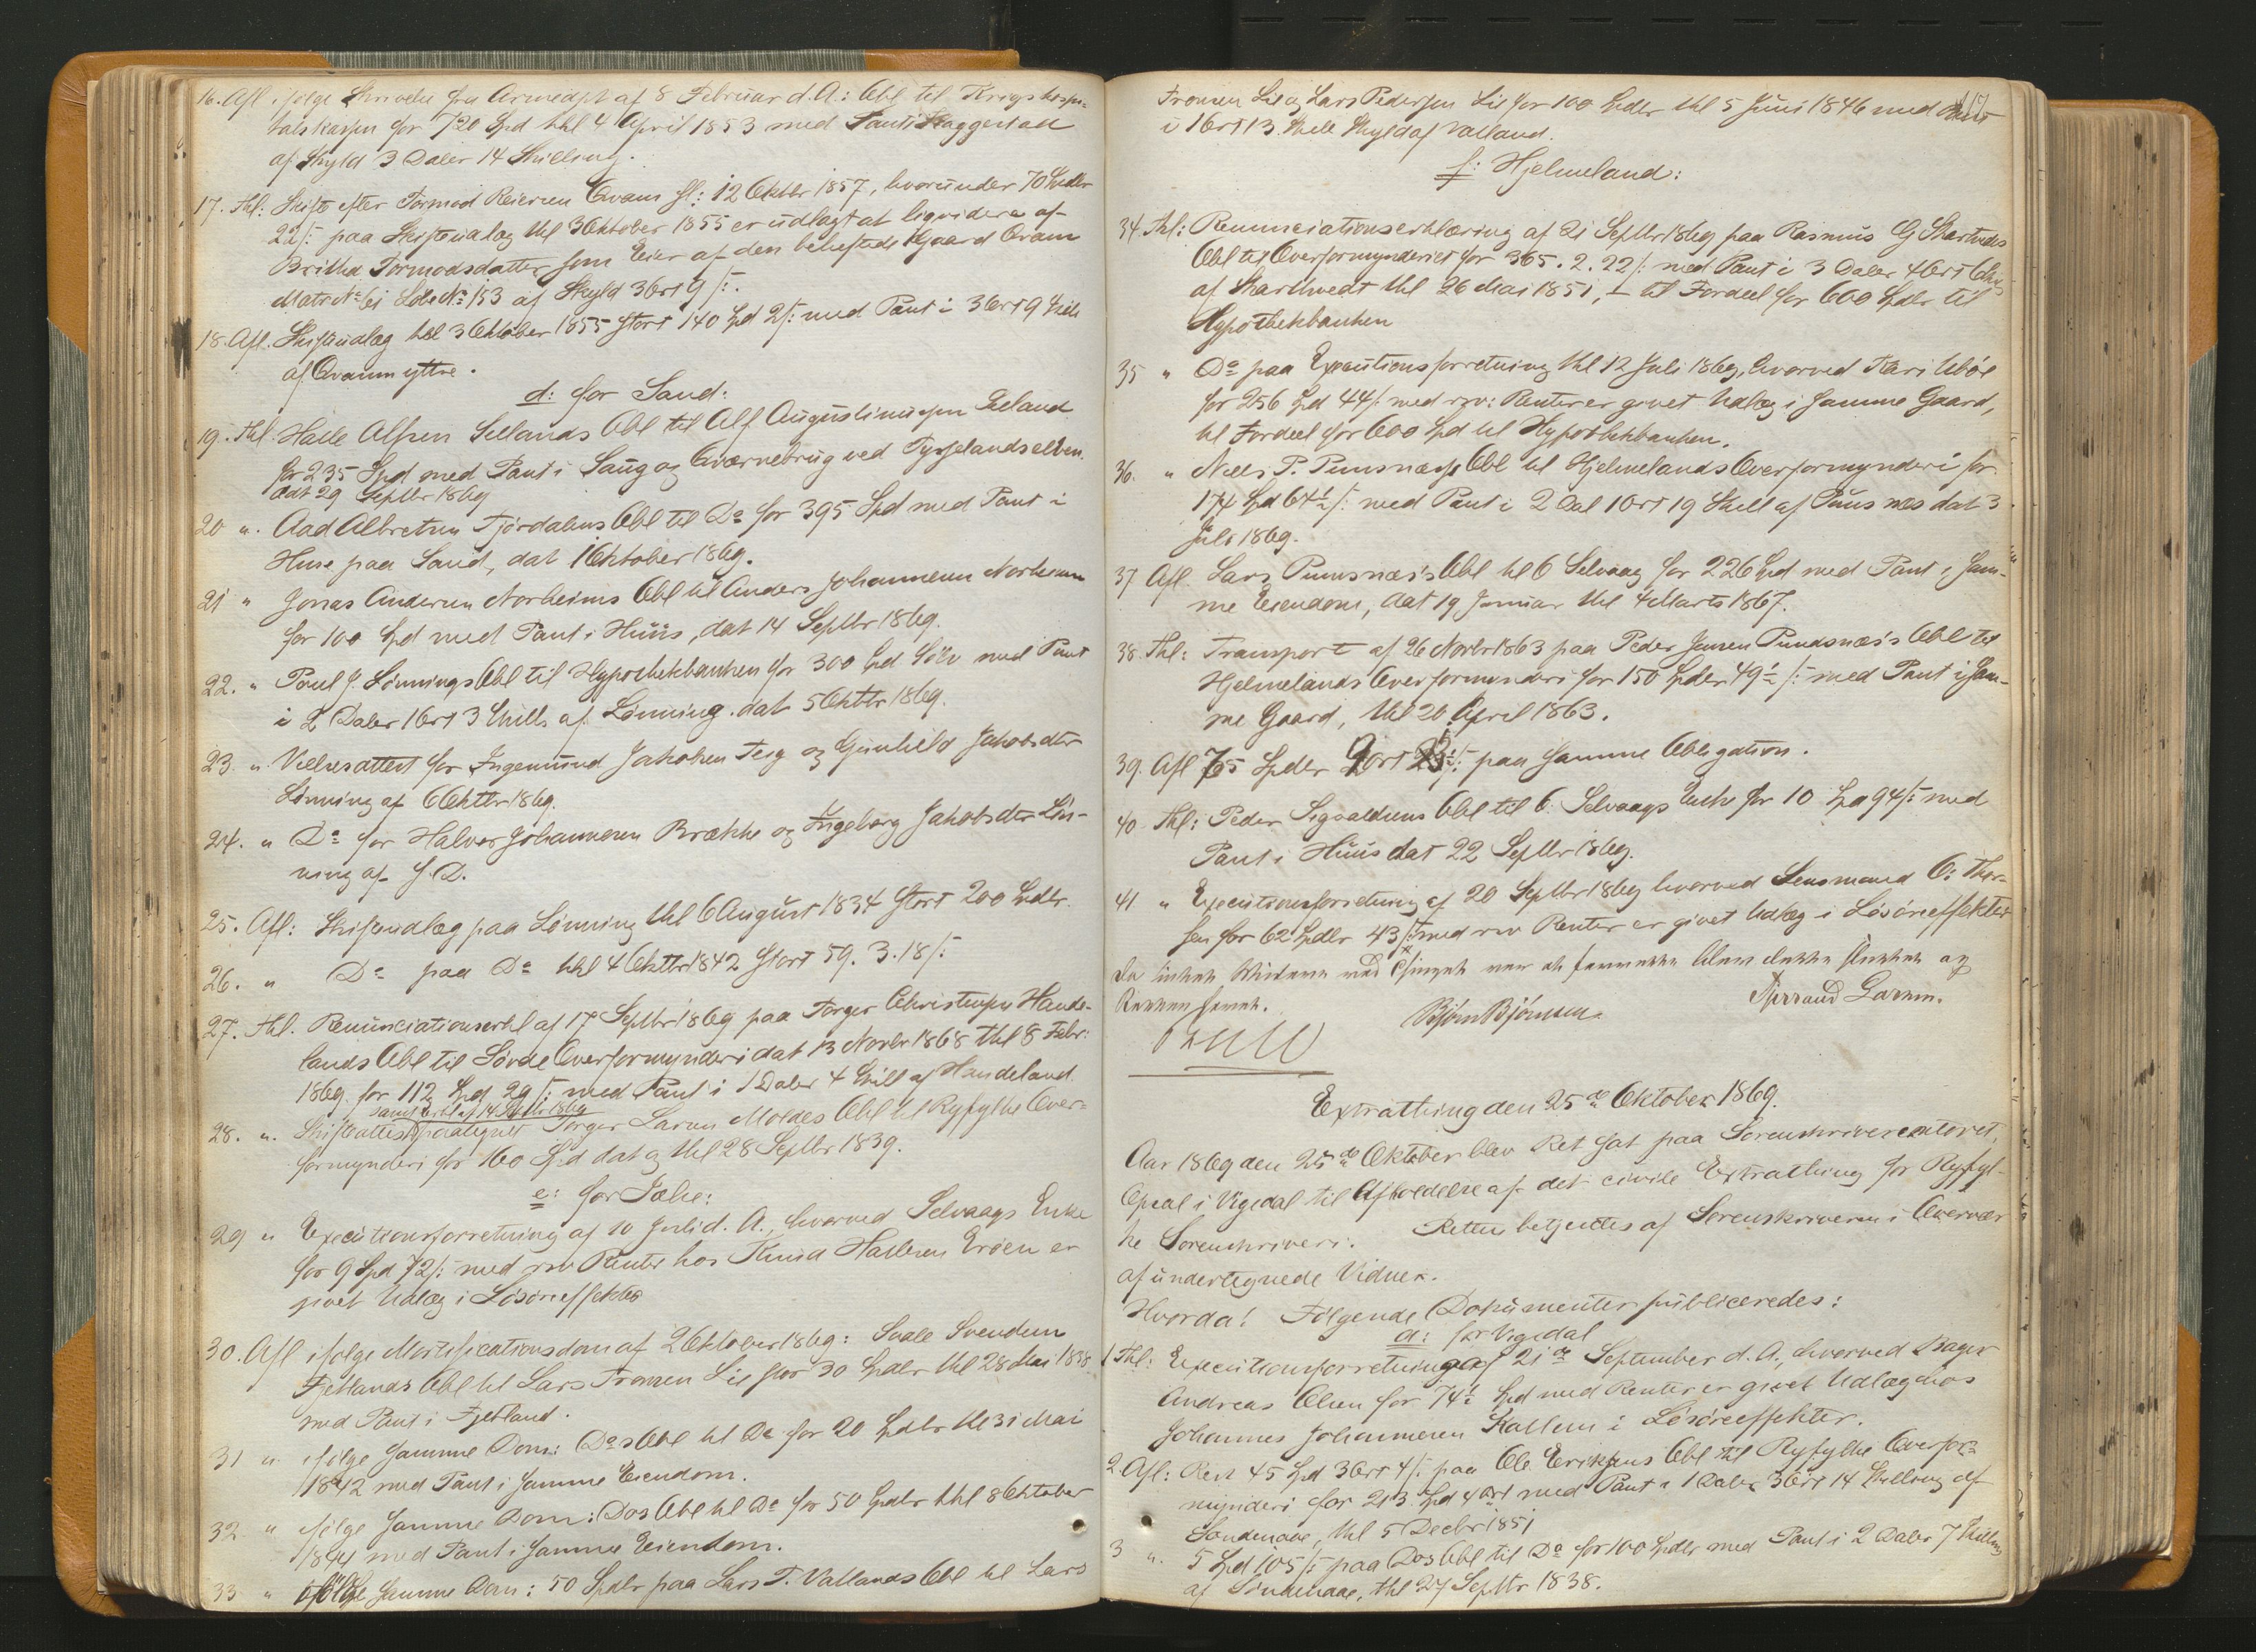 16. Afl ifølge Skrivelse fra Armedpt af 8 Februar d.A.: Obl til Krigshospi-
talskassen for 720 Spd thl 4 April 1853 med Pant i Haggestad
af Skyld 3 Daler 14 Skilling.
17. Thl: Skifte efter Tormod Reiersen Qvam sl: 12 Oktbr 1857, hvorunder 70 Spdlr
22 /: paa Skifteudlæg thl 3 Oktober 1855 er udlagt at liqvidere af
Britha Tormodsdatter som Eier af den beheftede Gaard Qvam
Matr No 61 Løbe No 153 af Skyld 3 Ort 9 /:.
18. Afl. Skifteudlæg thl 3 Oktober 1855 stort 140 Spd 2 /: med Pant i 3 Ort 9 Skill
af Qvam yttre.
d: for Sand:
19. Thl. Halle Alfsen Sellands Obl til Alf Augustinussen Eeland
for 235 Spd med Pant i Saug og Qværnebrug ved Tysselandselven.
dat 29 Septbr 1869
20 ". Aad Albretsen Fjørdahns Obl til Do for 395 Spd med Pant i
Huse paa Sand, dat 1 Oktober 1869.
21 " Jonas Andersen Norheims Obl til Anders Johannesen Norheim
for 100 Spd med Pant i Huus, dat 14 Septbr 1869.
22. " Poul J. Lønnings Obl til Hypothekbanken for 300 Spd Sølv med Pant
i 2 Daler 1 Ort 3 Skill. af Lønning. dat 5 Oktbr 1869.
23. ". Vielsesattest for Ingemund Jakobsen Teig og Gunhild Jakobsdtr
Lønning af 6 Oktbr 1869.
24. " Do for Halvor Johannesen Brække og Ingeborg Jakobsdtr Løn-
ning af s. D.
25. Afl: Skifteudlæg paa Lønning thl 6 August 1834 stort 200 Spdlr.
26. " Do paa Do thl 4 Oktbr 1842 stort 59. 3. 18 /:
27. Thl. Renunciationserkl af 17 Septbr 1869 paa Torger Christensen Hande-
lands Obl til Søvde Overformynderi dat 13 Novbr 1868 thl 8 Febr:
1869 for 112 Spd 29 /: med Pant i 1 Daler 4 Skill af Handeland.
samt erkl af 14 Septbr 1869
28. ". Skifteattest paategnet Torger Larsen Moldes Obl til Ryfylke Over-
formynderi for 160 Spd dat og thl 28 Septbr 1839.
e: for Jælse:
29 " Executionsforretning af 10 Juli d. A., hvorved Selvaags Enke
for 9 Spd 72 /: med rsv Renter hos Knud Hallesen Erøen er
givet Udlæg i Løsøreeffekter
30. Afl ifølge Mortificationsdom af 2 Oktober 1869: Svale Svendsen
Fjetlands Obl til Lars Tronsen Lie stor 30 Spdlr thl 28 Mai 1838
med Pant i Fjetland.
31 " ifølge samme Dom: Dos Obl til Do for 20 Spdlr thl 31 Mai
1842 med Pant i samme Eiendom.
32 " ifølge samme Dom: Dos Obl til Do for 50 Spdlr thl 8 Oktober
1844 med Pant i samme Eiendom.
33 " ifølge samme Dom: 50 Spdlr paa Lars T. Vatlands Obl til Lars
Tronsen Lie og Lars Pedersen Lie for 100 Spdlr thl 5 Juni 1846 med Pant
i 1 Ort 13 Skill Skyld af Vatland.
f: Hjelmeland:
34 Thl: Renunciationserklæring af 21 Septbr 1869 paa Rasmus G Skartveds
Obl til Overformynderiet for 365. 2. 22 /: med Pant i 3 Daler 4 Ort 6 Skill
af Skartvedt thl 26 Mai 1851, – til Fordeel for 600 Spdlr til
Hypothekbanken
35 " Do paa Executionsforretning thl 12 Juli 1869, hvorved Kari Ubøe
for 256 Spd 44 /: med rsv: Renter er givet Udlæg i samme Gaard,
til Fordeel for 600 Spd til Hypothekbanken.
36. " Niels P. Punsnæs's Obl til Hjelmelands Overformynderi for
174 Spd 64½ /: med Pant i 2 Dal 1 Ort 19 Skill af Puns næs dat 3
Juli 1869.
37 Afl. Lars Punsnæs's Obl til O Selvaag for 226 Spd med Pant i sam-
me Eiendom, dat 19 Januar thl 4 Marts 1867.
38. Thl: Transport af 26 Novbr 1863 paa Peder Jensen Pundsnæs's Obl til
Hjelmelands Overformynderi for 150 Spdlr 49½ /: med Pant i sam-
me Gaard, thl 20 April 1863.
39. Afl 75 Spdlr 2 Ort /: paa samme Obligation.
40 Thl: Peder Sigvaldsens Obl til O. Selvaags Enke for 10 Spd 94 /: med
Pant i Huus dat 22 Septbr 1869.
41 " Executionsforretning af 20 Septbr 1869 hvorved Lensmand O: Thor-
sen for 62 Spdlr 43 /: med rsv Renter er givet Udlæg i Løsøreeffekter
Da intet Videre ved Thinget var at foretage blev dette sluttet og
Retten hævet.
Bjørn Bjørnsen Larsen.
Extrathing den 25de Oktober 1869.
Aar 1869 den 25de Oktober blev Ret sat paa Sorenskrivercontoret,
Opsal i Vigedal til Afholdelse af det civile Extrathing for Ryfyl-
ke Sorenskriveri. Retten betjentes af Sorenskriveren i Overvær
af undertegnede Vidner.
Hvorda: Følgende Dokumenter publiceredes:
a: for Vigedal
1 Thl: Executionsforretning af 21de September d. A., hvorved Bager
Andreas Olsen for 74½ Spd med Renter er givet Udlæg hos
Johannes Johannesen Kallem i Løsøreeffekter.
2 Afl: Rest 45 Spd 3 Ort 4 /: paa Ole Eriksens Obl til Ryfylke Overfor-
mynderi for 213 Spd 4 Ort med Pant i 1 Daler 3 Ort 14 Skilling af
Søndenaae, thl 5 Decbr 1851
3 ". 5 Spd 105 /: paa Dos Obl til Do for 100 Spdlr med Pant i 2 Daler 7 Skilling
af Søndenaae, thl 27 Septbr 1838.